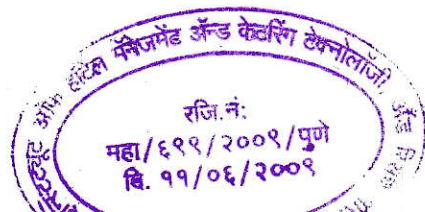 ऑफ हॉटेल मॅनेजमेंट अॅन्ड केटरिंग टेक्नोलॉजी
रजि.नं:
महा/६९९/२००९/पुणे
दि. ११/०६/२००९